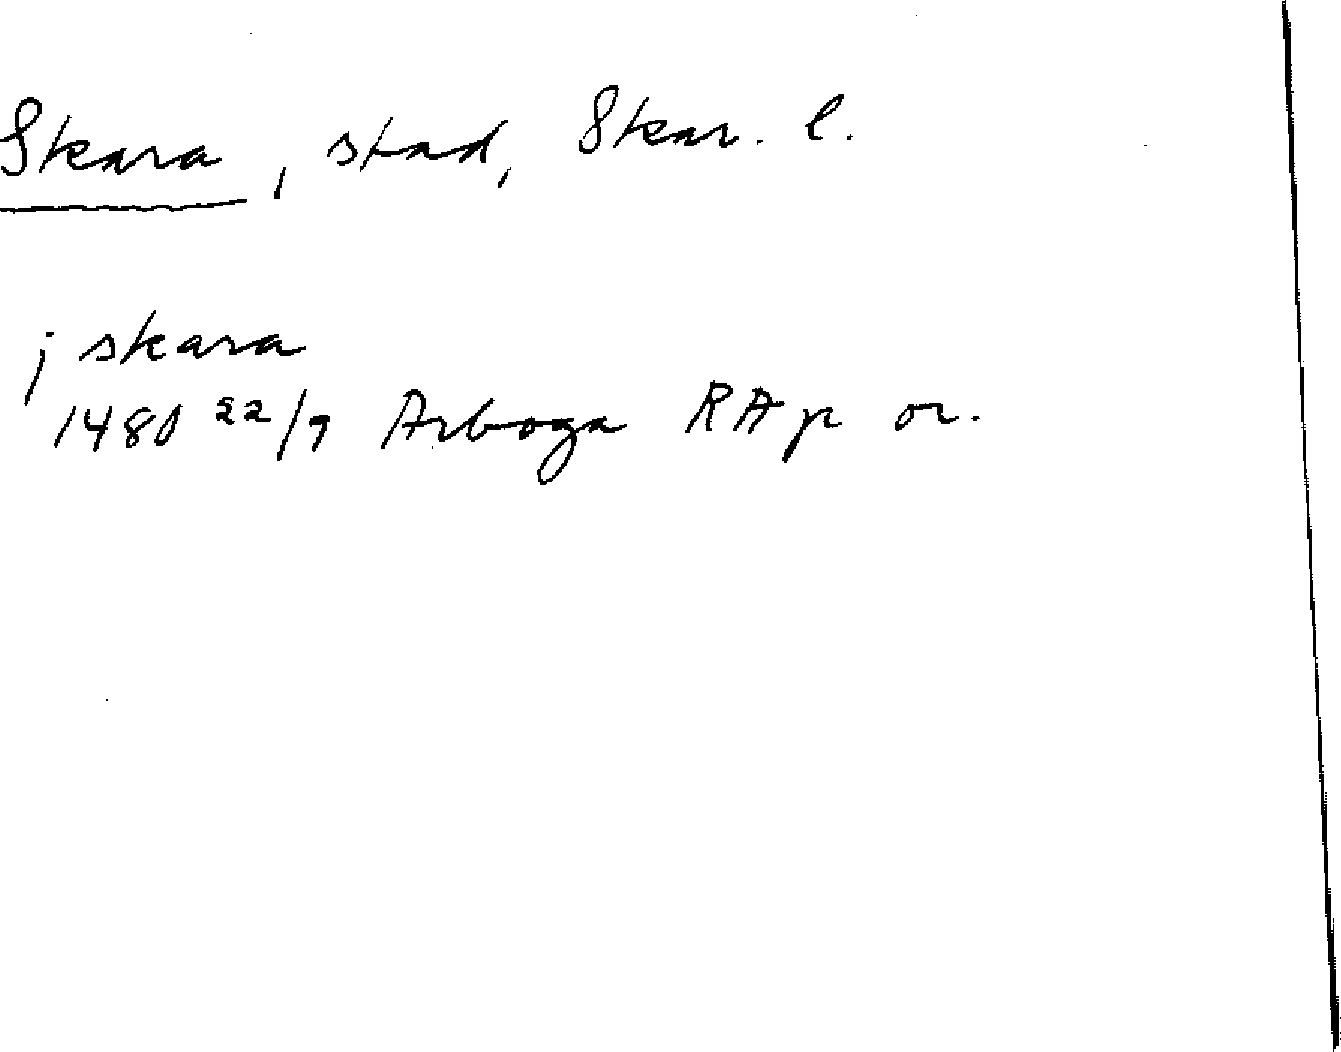 Skara, stad, Skar. l.
j skara
1480 22/9 Arboga RA p or.